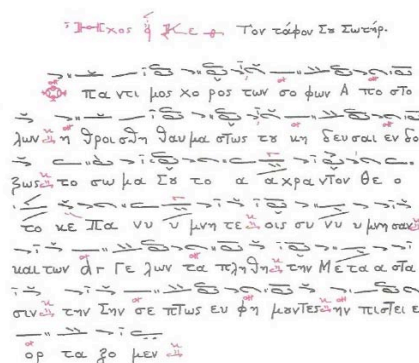 Ἦχος ἁ Κε Τον τάφον Σȣ Σωτήρ.
παντι μος χο ρος των σο φων Α πο στο
λων η θροισθη θαυμα στως τȣ κη δευσαι εν δο
ξως το σω μα Σȣ το α α χραντον θε ο
το κε Πα νυ υ μνη τε οις συ νυ υ μνησαν
και των αγ Γε λων τα πληθη την Μετα α στα
σιν την Σην σε πτως ευ φη μȣντες ην πιστει ε
ορ τα ζο μεν